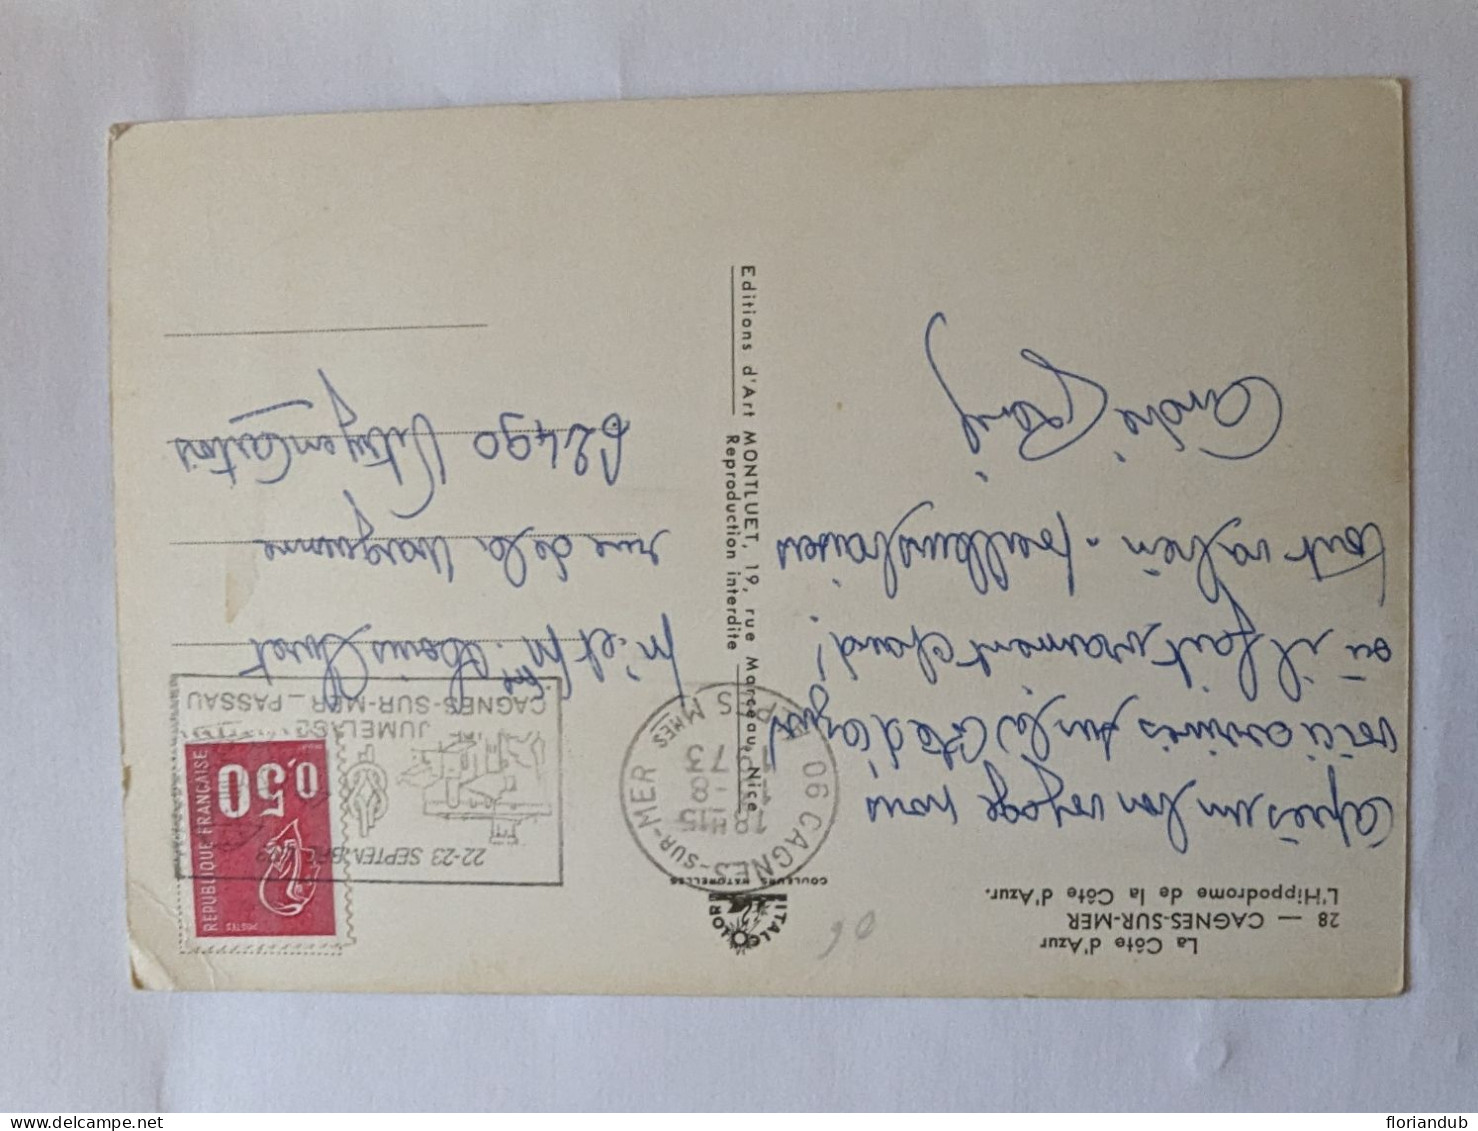 La Côte d'Azur
28 — CAGNES-SUR-MER
L'Hippodrome de la Côte d'Azur.
06
ITALCOLOR
COULEURS NATURELLES
Après un bon voyage nous
voici arrivés sur la Côte d'Azur
où il fait vraiment chaud!
tout va bien - meilleurs baisers
André
Editions d'Art MONTLUET, 19, rue Marceau, Nice
Reproduction interdite
06 CAGNES-SUR-MER
18H15
-8
73
ALPES MMES
22-23 SEPTEMBRE
JUMELAGE
CAGNES-SUR-MER _ PASSAU
POSTES
REPUBLIQUE FRANÇAISE
0,50
Mr et Mme Louis
rue de la
62490 Vitry en Artois
floriandub